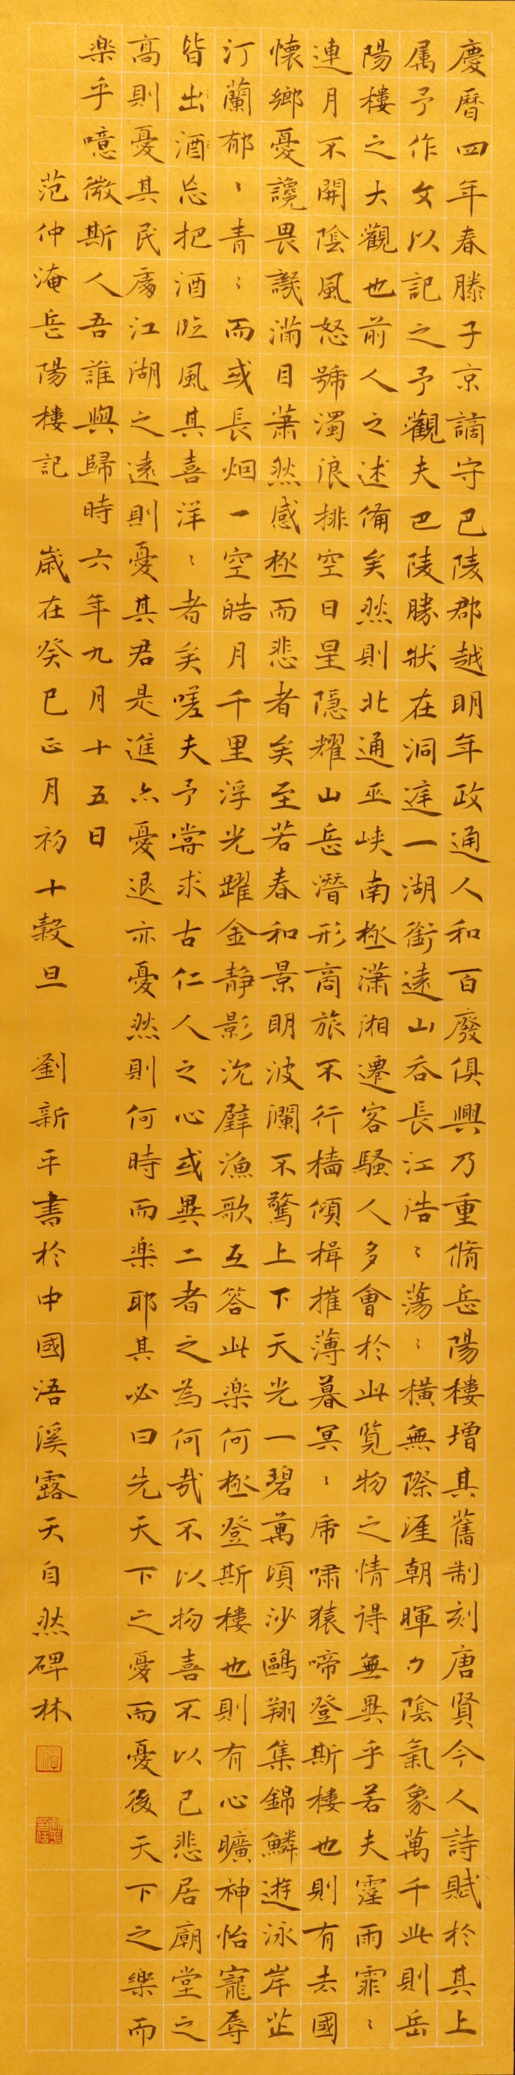 慶曆四年春滕子京謫守巴陵郡越明年政通人和百廢俱興乃重脩岳陽樓增其舊制刻唐賢今人詩賦於其上
属予作文以記之予觀夫巴陵勝狀在洞庭一湖銜遠山吞長江浩〻蕩〻橫無際涯朝暉夕陰氣象萬千此則岳
陽樓之大觀也前人之述備矣然則北通巫峽南極瀟湘遷客騷人多會於此覽物之情得無異乎若夫霪雨霏〻
連月不開陰風怒號濁浪排空日星隱耀山岳潛形商旅不行檣傾楫摧薄暮冥〻虎啸猿啼登斯樓也則有去國
懷鄉憂讒畏譏滿目蕭然感極而悲者矣至若春和景明波瀾不驚上下天光一碧萬頃沙鷗翔集錦鱗遊泳岸芷
汀蘭郁〻青〻而或長烟一空皓月千里浮光躍金靜影沉璧漁歌互答此楽何極登斯樓也則有心曠神怡寵辱
皆出酒忘把酒臨風其喜洋〻者矣嗟夫予嘗求古仁人之心或異二者之為何哉不以物喜不以己悲居廟堂之
高則憂其民處江湖之遠則憂其君是進亦憂退亦憂然則何時而楽耶其必曰先天下之憂而憂後天下之樂而
楽乎噫微斯人吾誰與歸時六年九月十五日
范仲淹岳陽樓記 歲在癸巳正月初十穀旦 劉新平書於中國浯溪露天自然碑林